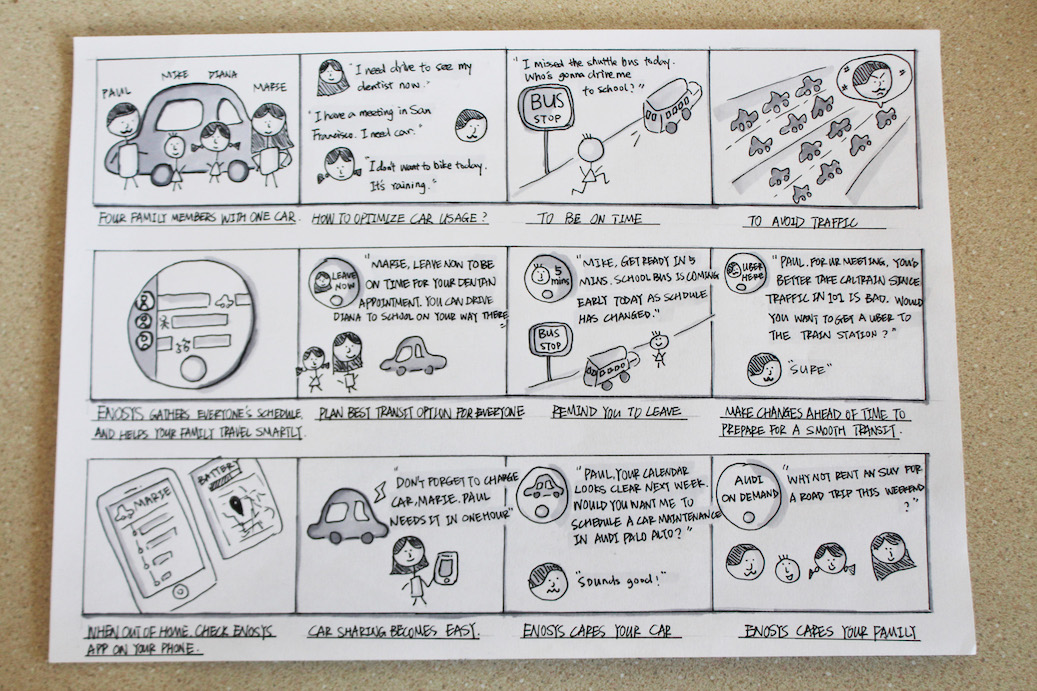 PAUL
MIKE
DIANA
MARIE
FOUR FAMILY MEMBERS WITH ONE CAR.
"I need drive to see my
dentist now."
"I have a meeting in San
Francisco. I need car."
"I don't want to bike today.
It's raining."
HOW TO OPTIMIZE CAR USAGE?
"I missed the shuttle bus today.
Who's gonna drive me
to school?"
BUS
STOP
TO BE ON TIME
TO AVOID TRAFFIC
ENOSYS GATHERS EVERYONE'S SCHEDULE
AND HELPS YOUR FAMILY TRAVEL SMARTLY.
LEAVE
NOW
"MARIE, LEAVE NOW TO BE
ON TIME FOR YOUR DENTAN
APPOINTMENT. YOU CAN DRIVE
DIANA TO SCHOOL ON YOUR WAY THERE
"
PLAN BEST TRANSIT OPTION FOR EVERYONE
5
mins
"MIKE, GET READY IN 5
MINS. SCHOOL BUS IS COMING
EARLY TODAY AS SCHDULE
HAS CHANGED."
BUS
STOP
REMIND YOU TO LEAVE
UBER
HERE
"PAUL. FOR UR MEETING, YOU'D
BETTER TAKE CALTRAIN SINCE
TRAFFIC IN 101 IS BAD. WOULD
YOU WANT TO GET A UBER TO
THE TRAIN STATION?"
"SURE"
MAKE CHANGES AHEAD OF TIME TO
PREPARE FOR A SMOOTH TRANSIT.
MARIE
BATTERY
WHEN OUT OF HOME. CHECK ENOSYS
APP ON YOUR PHONE.
"
DON'T FORGET TO CHARGE
CAR, MARIE. PAUL
NEEDS IT IN ONE HOUR"
CAR SHARING BECOMES EASY.
"PAUL, YOUR CALENDAR
LOOKS CLEAR NEXT WEEK.
WOULD YOU WANT ME TO
SCHEDULE A CAR MAINTENANCE
IN AUDI PALO ALTO?"
"Sounds good!"
ENOSYS CARES YOUR CAR
AUDI
ON DEMAND
"WHY NOT RENT AN SUV FOR
A ROAD TRIP THIS WEEKEND
?"
ENOSYS CARES YOUR FAMILY